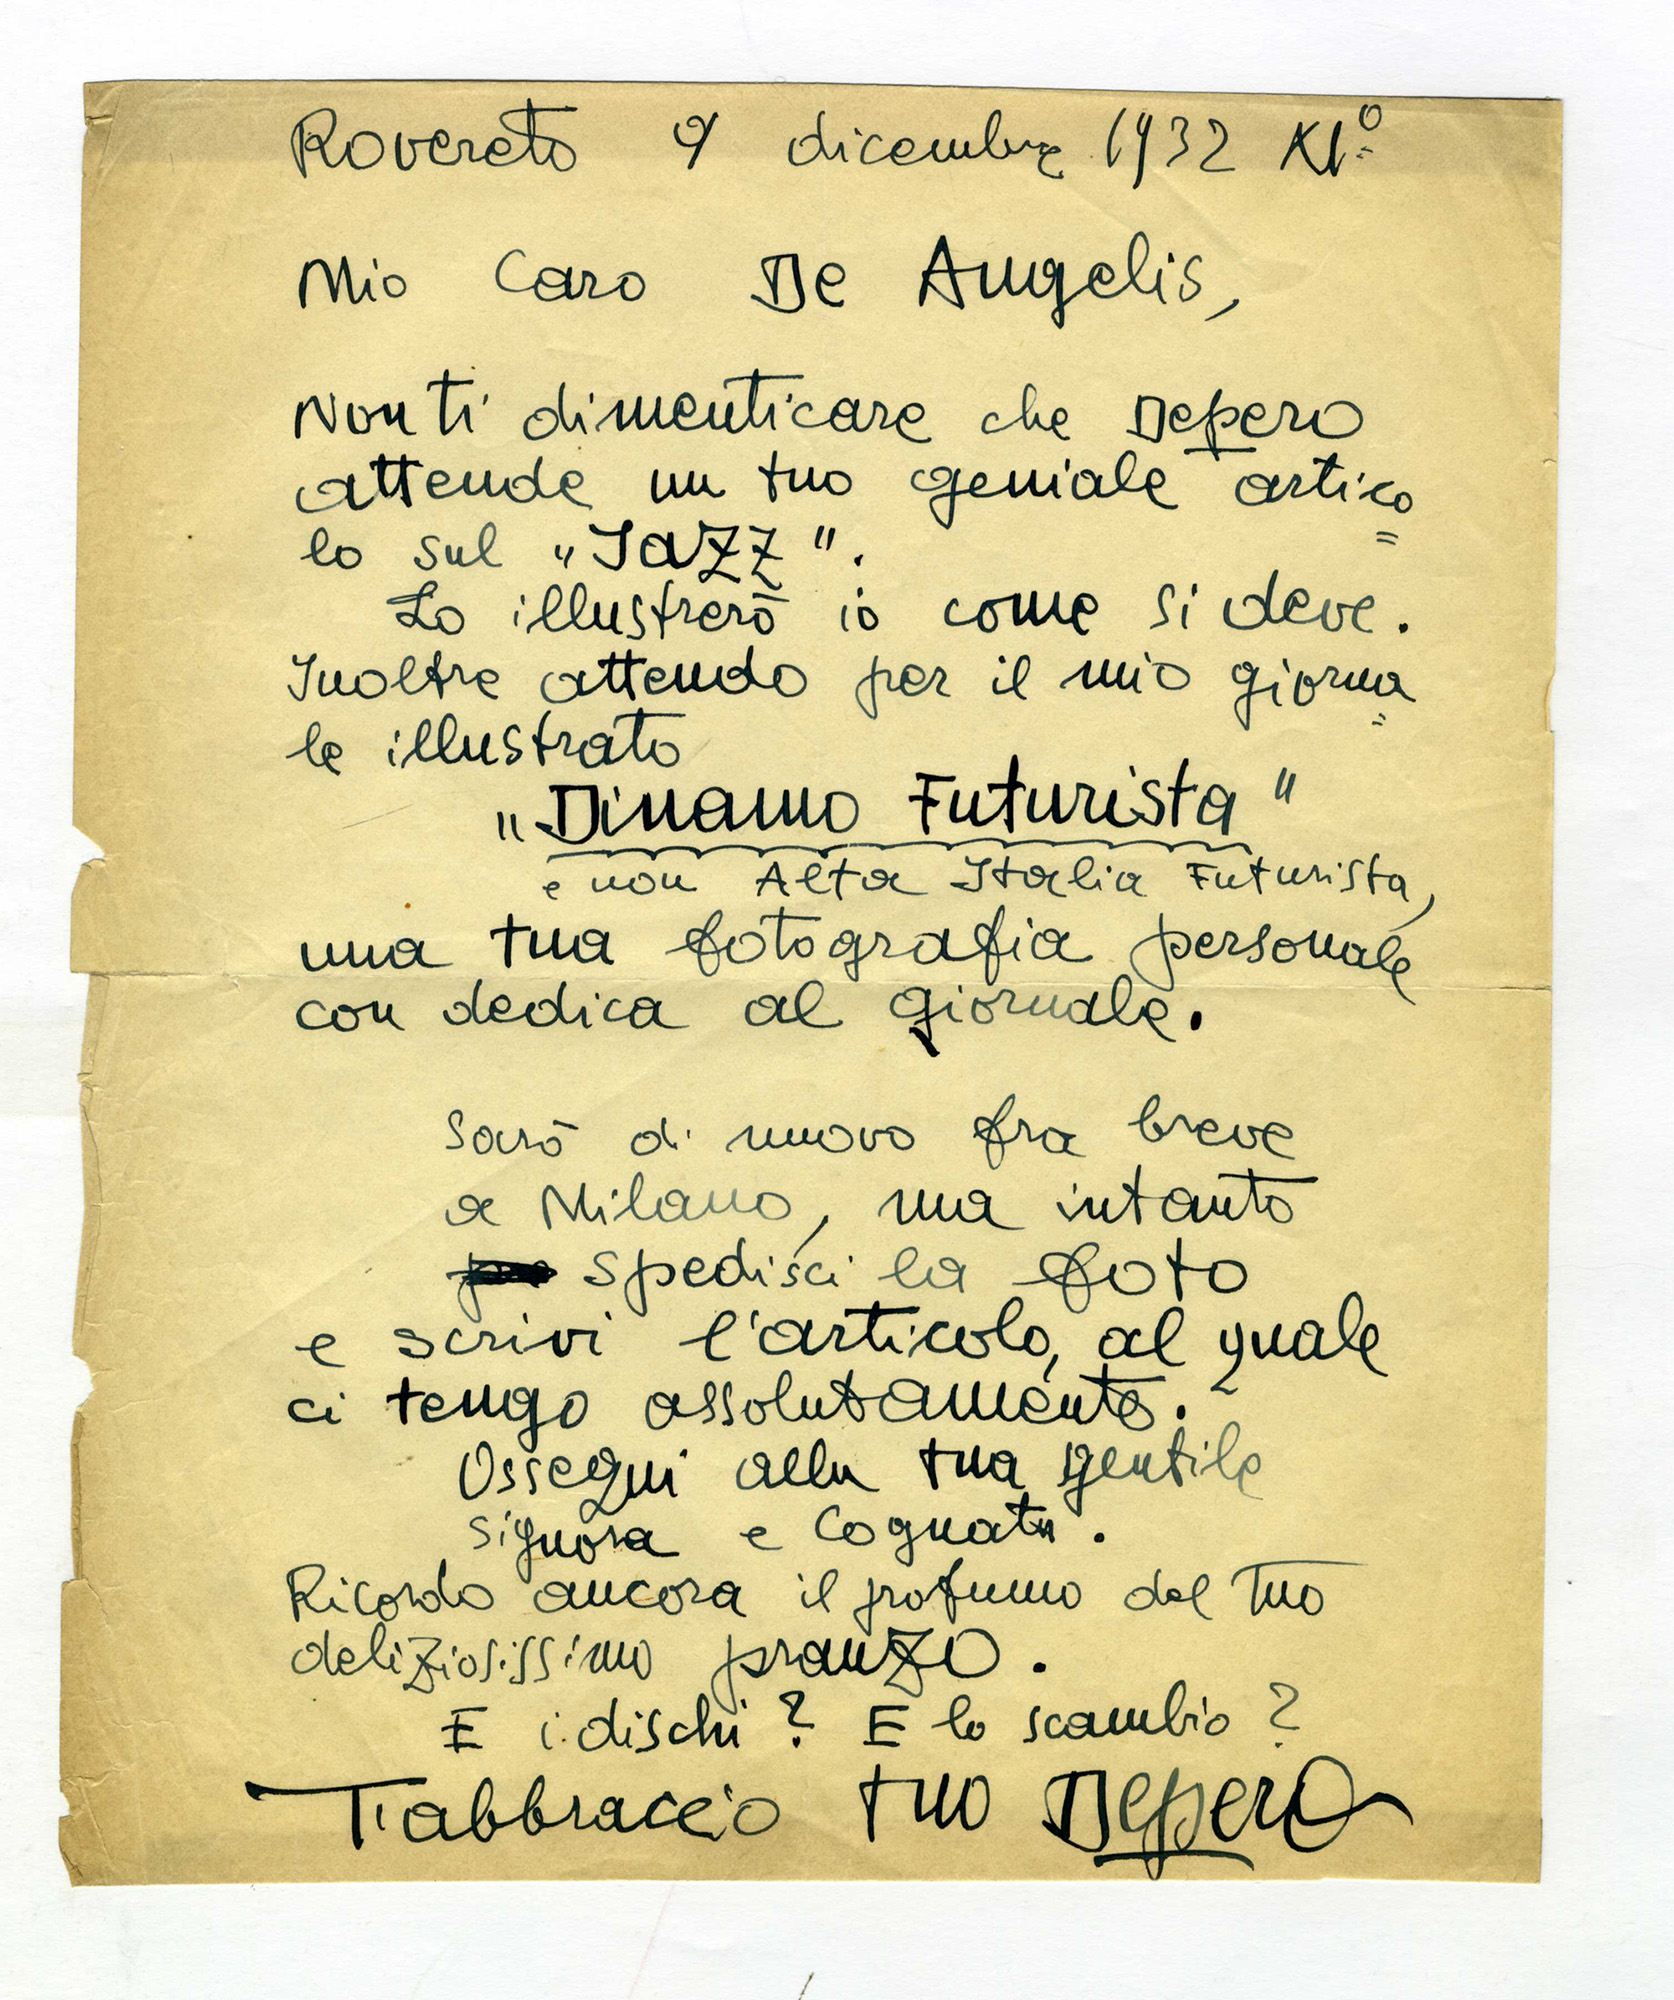 Rovereto 9 dicembre 1932 XI°
Mio Caro De Angelis,
Non ti dimenticare che Depero
attende un tuo geniale artico=
lo sul "Jazz".
Lo illustrerò io come si deve.
Inoltre attendo per il mio giorna=
le illustrato
"Dinamo Futurista"
e non Alta Italia Futurista,
una tua fotografia personale
con dedica al giornale.
Sarò di nuovo fra breve
a Milano, ma intanto
spedisci la foto
e scrivi l'articolo, al quale
ci tengo assolutamente.
Ossequi alla tua gentile
signora e Cognata.
Ricordo ancora il profumo del Tuo
deliziosissimo pranzo.
E i dischi? E lo scambio?
Ti abbraccio tuo Depero